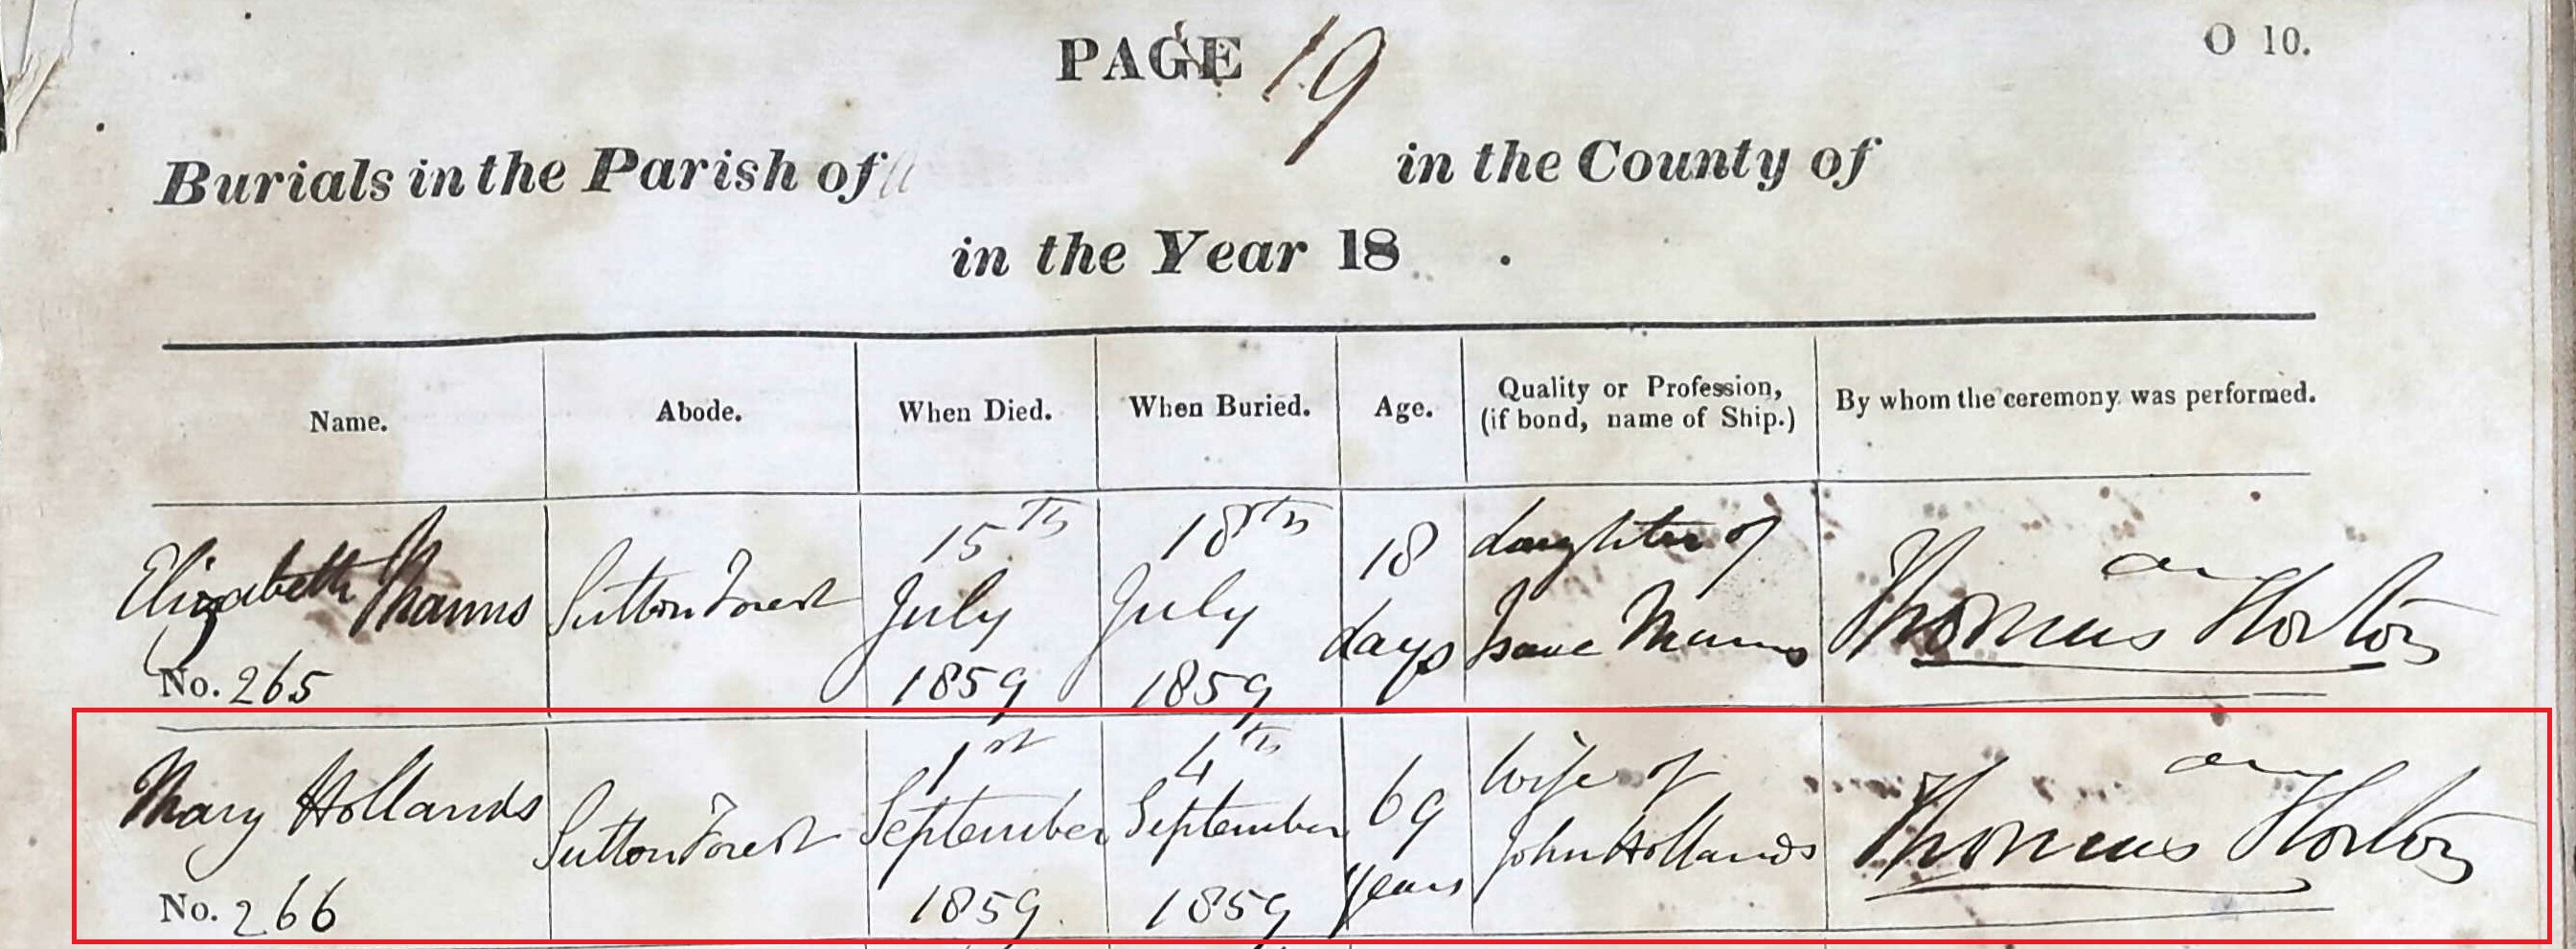 PAGE 19
O 10.
Burials in the Parish of in the County of
in the Year 18 .
Name. Abode. When Died. When Buried. Age. Quality or Profession, (if bond, name of Ship.) By whom the ceremony was performed.
Elizabeth Manns Sutton Forest 15th July 1859 18th July 1859 18 days daughter of Isaac Manns Thomas Horton
No. 265
Mary Hollands Sutton Forest 1st September 1859 4th September 1859 69 years wife of John Hollands Thomas Horton
No. 266